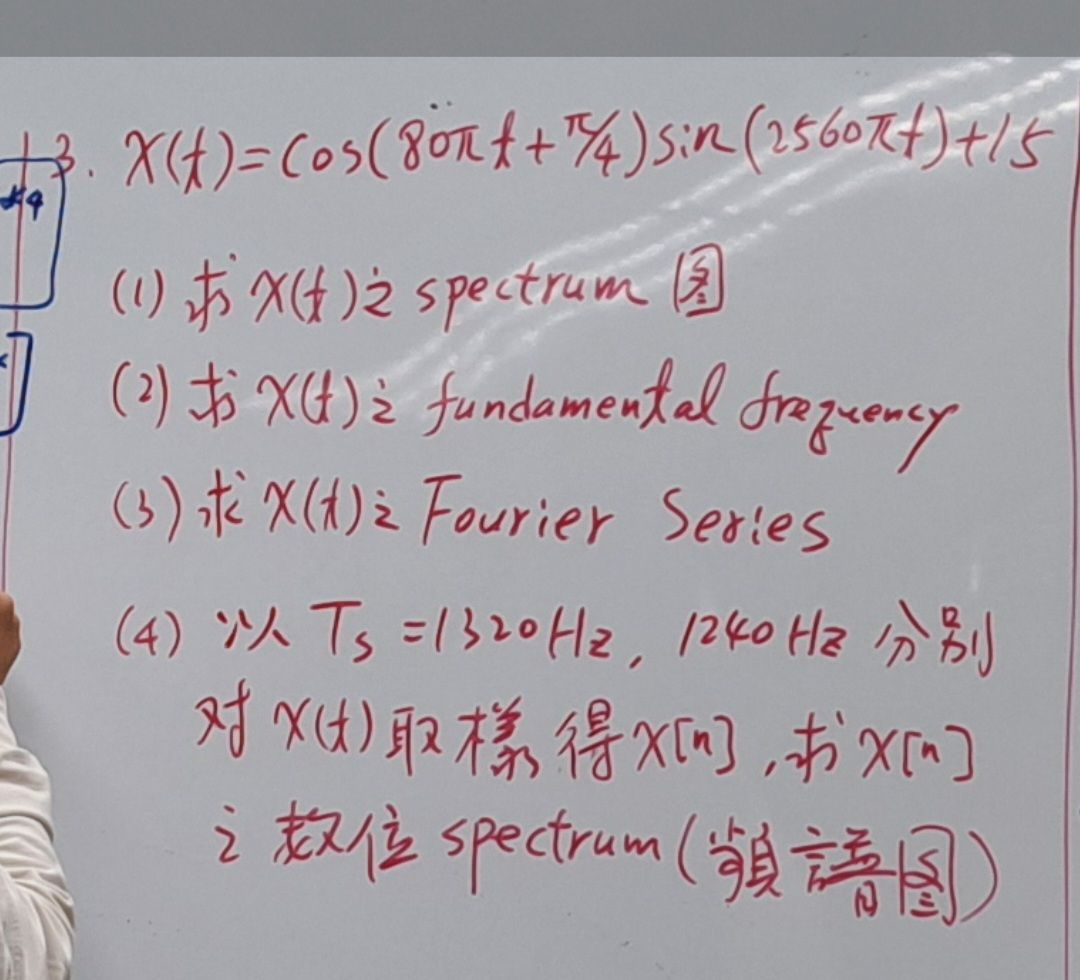 3. X(t)=cos(80πt+π/4)sin(2560πt)+15
*9
(1) 求X(t)之spectrum 图
(2) 求X(t)之 fundamental frequency
(3) 求X(t)之 Fourier Series
(4) 以 Ts =1320Hz, 1240Hz 分別
对X(t)取樣得X[n],求X[n]
之数位spectrum(頻譜图)